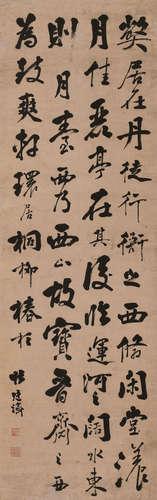 弊居在丹徒行衙之西翛閑堂漾
月佳麗亭在其後臨運河之闊水東
則月臺西乃西山故寶晉齋之西
為致爽軒環居桐柳椿杉